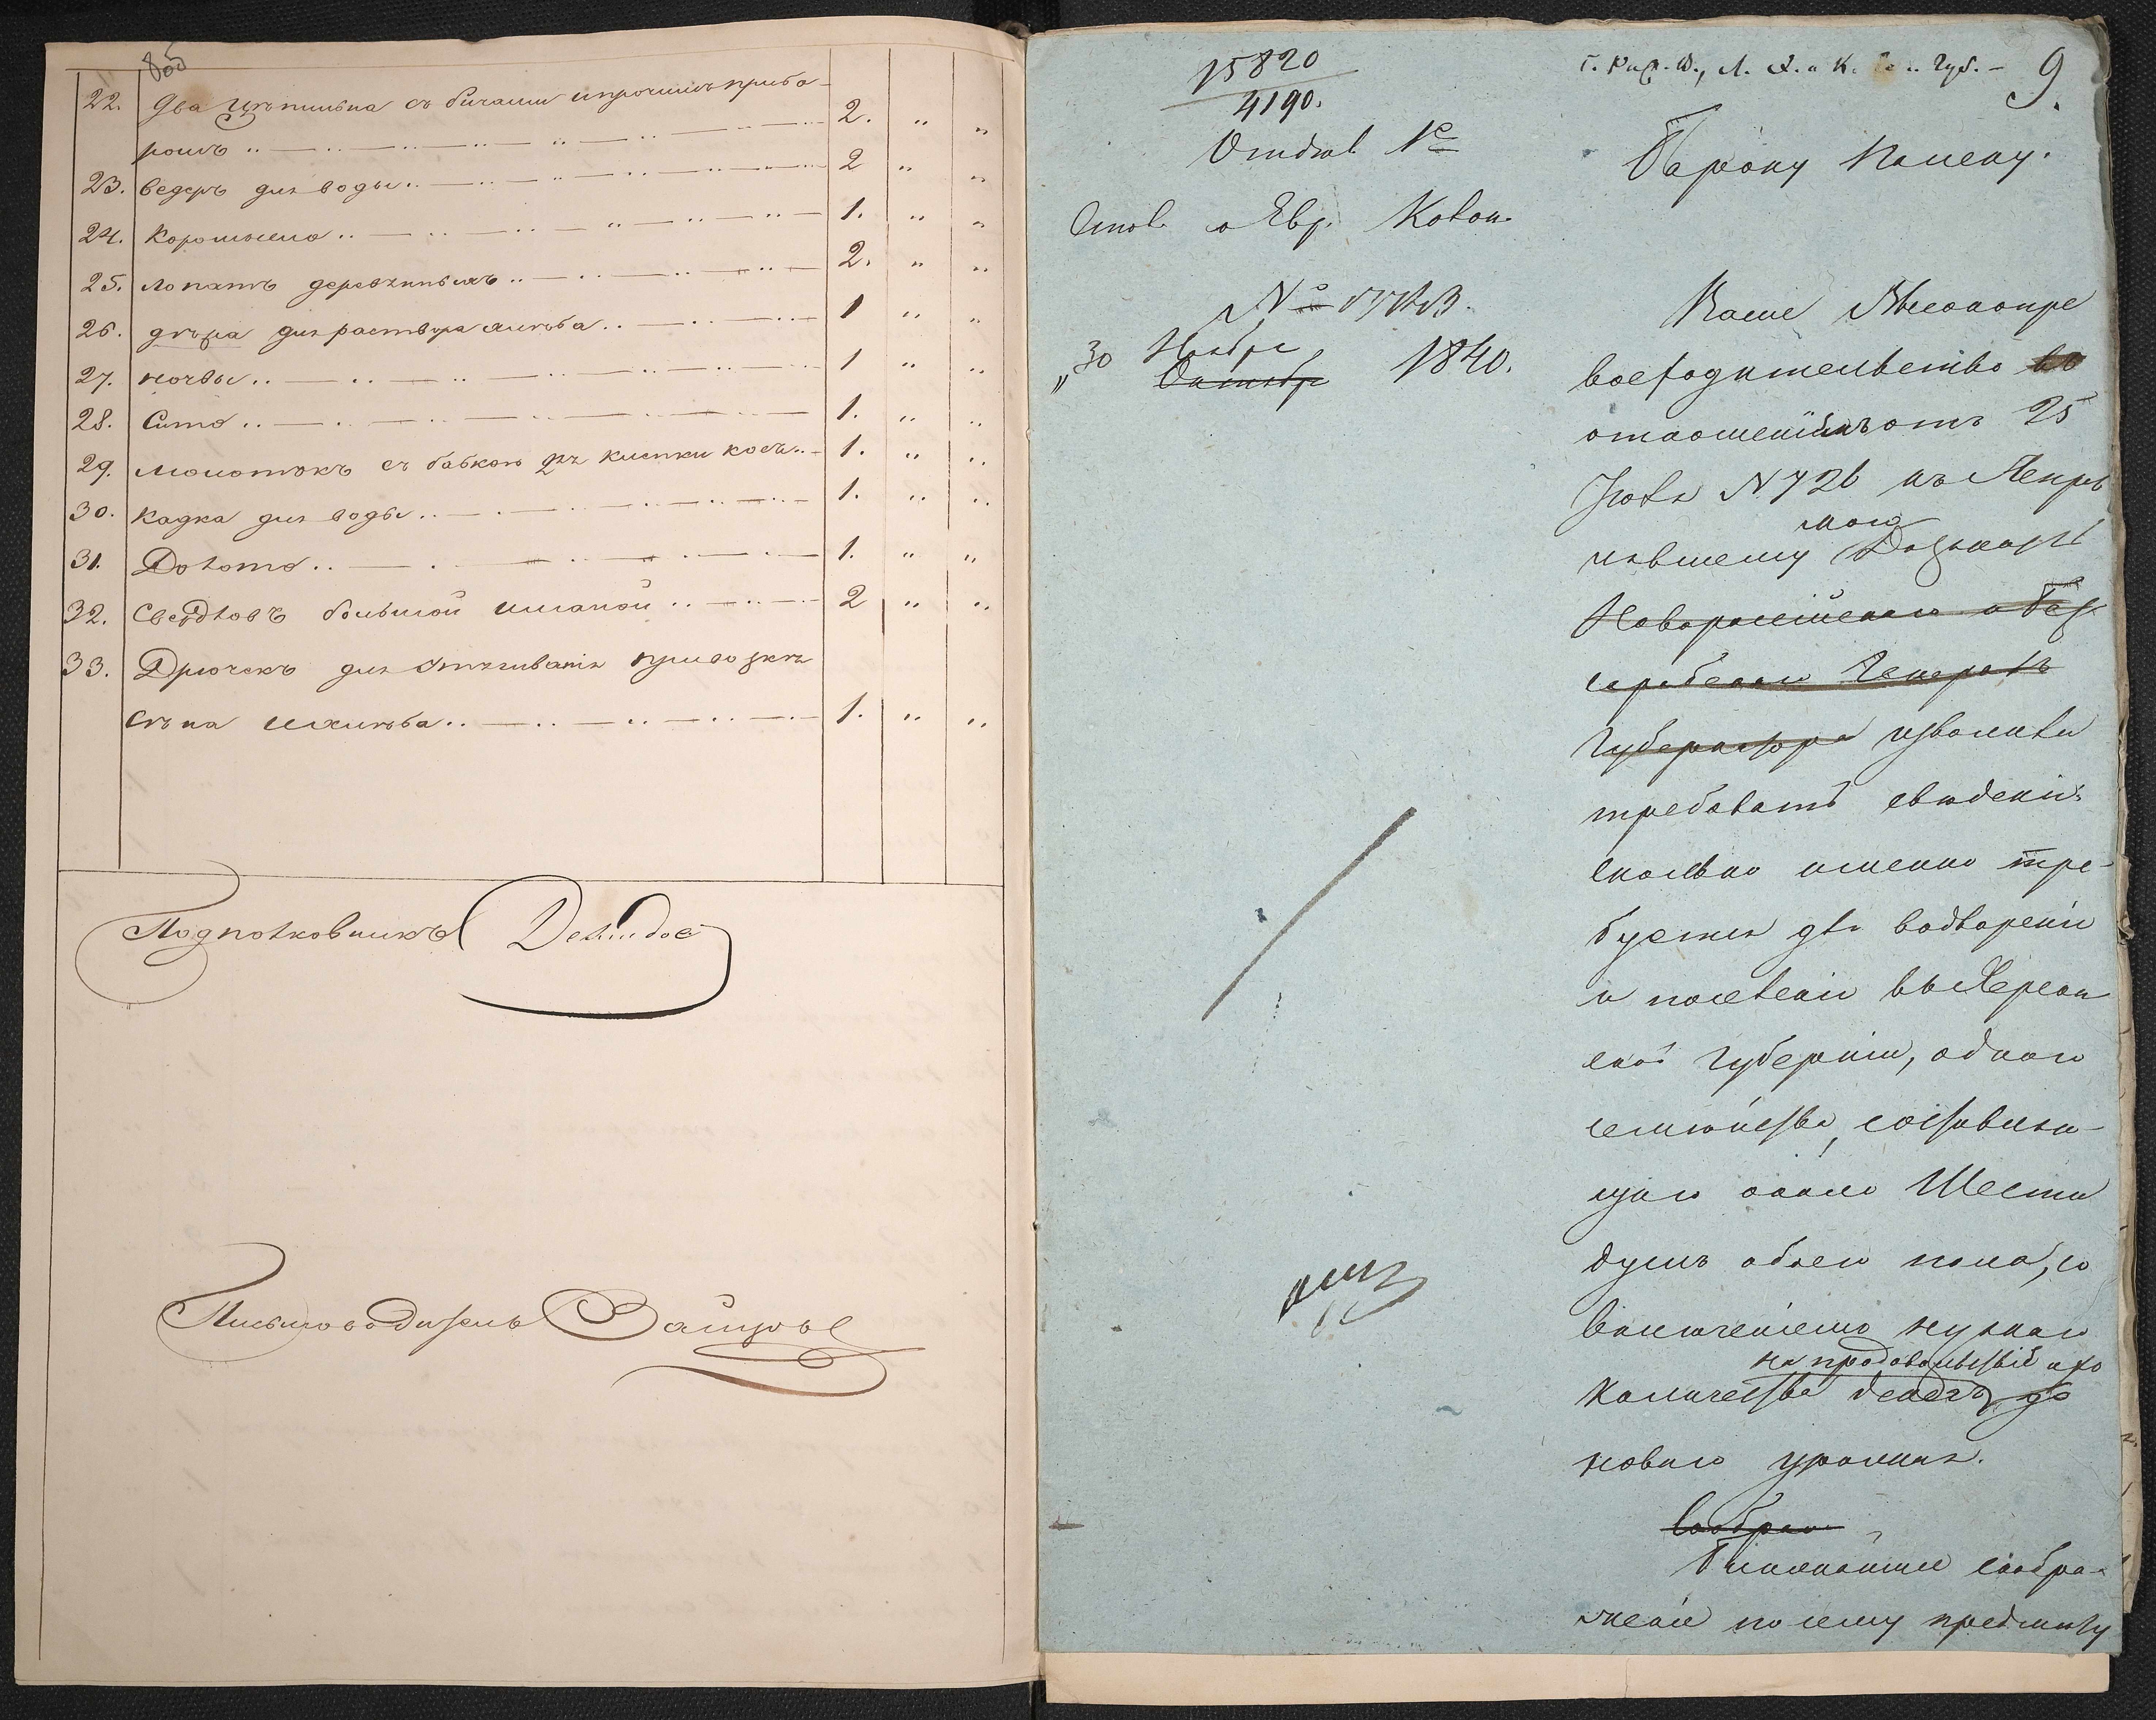 8об
22. Два цѣпильна съ бичами ипрочимъ прибо-
ромъ 2. " "
23. ведеръ для воды 2 " "
24. Коромысло 1. " "
25. лопатъ деревянныхъ 2. " "
26. дѣжа для раствора хлѣба 1 " "
27. ночвы 1 " "
28. Сито 1. " "
29. молотокъ съ бабкою для клепки косъ 1. " "
30. кадка для воды 1. " "
31. Долото 1. " "
32. Свердловъ большой ималой 2 " "
33. Дрючекъ для стягиванія привозкѣ
сѣна ихлѣба 1. " "
Подполковникъ
Письмоводитель
15820
4190.
Отдѣл. №
Стол. о Евр. Колон.
№
"30 Ноября
Октября 1840.
9.
Барону Палену.
Ваше Высокопре
восходительство въ
отношеніи отъ 25
Іюля № 726 къ Исправ
лявшему мою Должность
Новороссійскаго и Бес
сарабскаго Генералъ
Губернатора изволили
требовать свѣденія
сколько именно тре-
буется для водворенія
и поселенія въ Херсон
ской Губерніи, одного
семейства, составляю-
щаго около Шести
душъ обоего пола, со
включеніемъ нужнаго
на продовольствіе ихъ
количества денегъ до
новаго урожая.
Соображ
Ближайшее сообра-
женіе по сему предмету